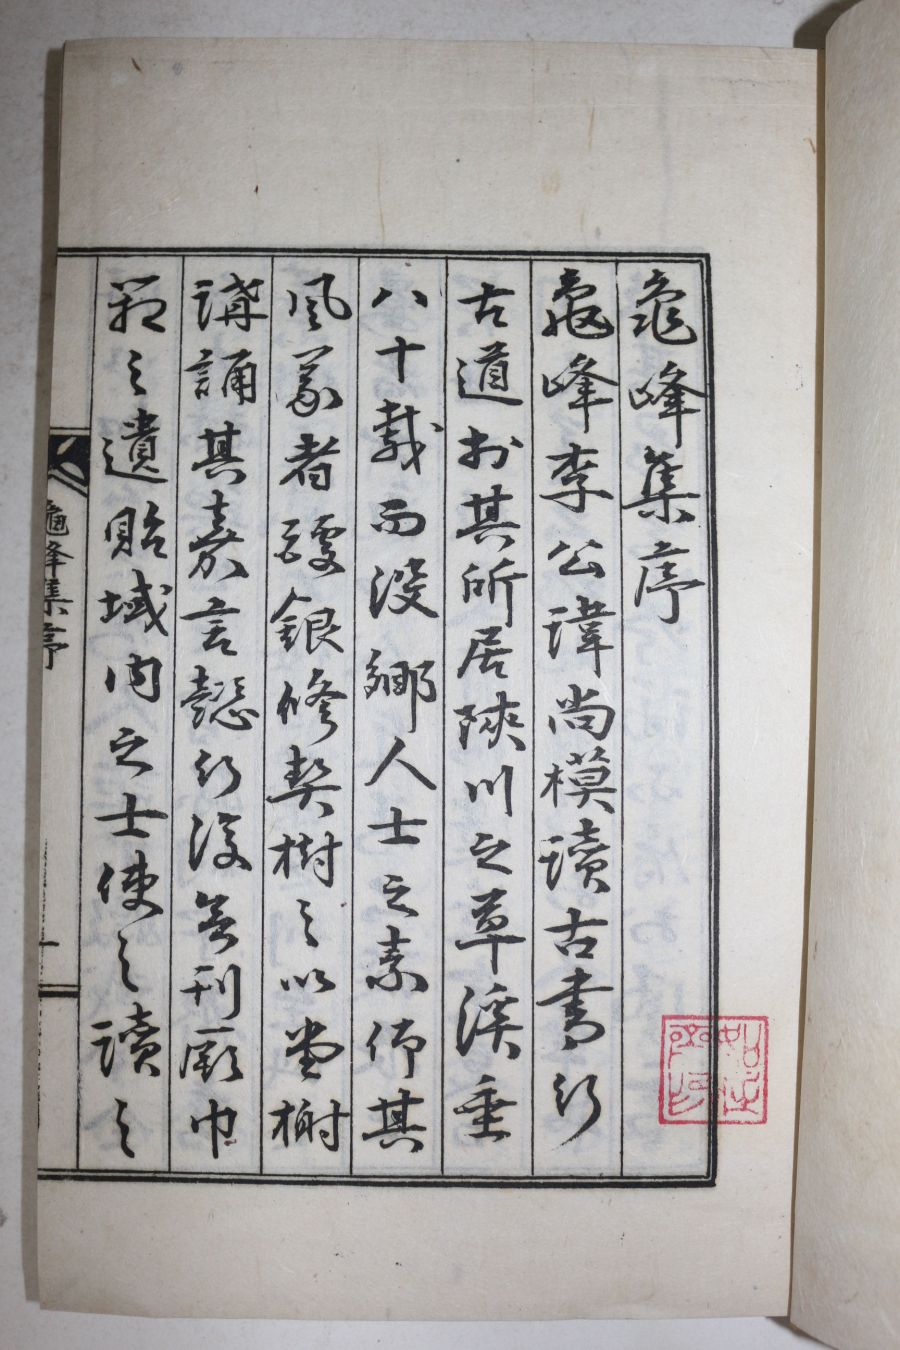 龜峰集序
龜峰李公瑋尚模讀古書行
古道於其所居陜川之草溪垂
八十載而沒鄉人士之素仰其
風義者醵銀修契樹之以堂榭
講誦其嘉言懿行刊厥巾
箱之遺貽域內之士使之讀之
龜峰集序
一